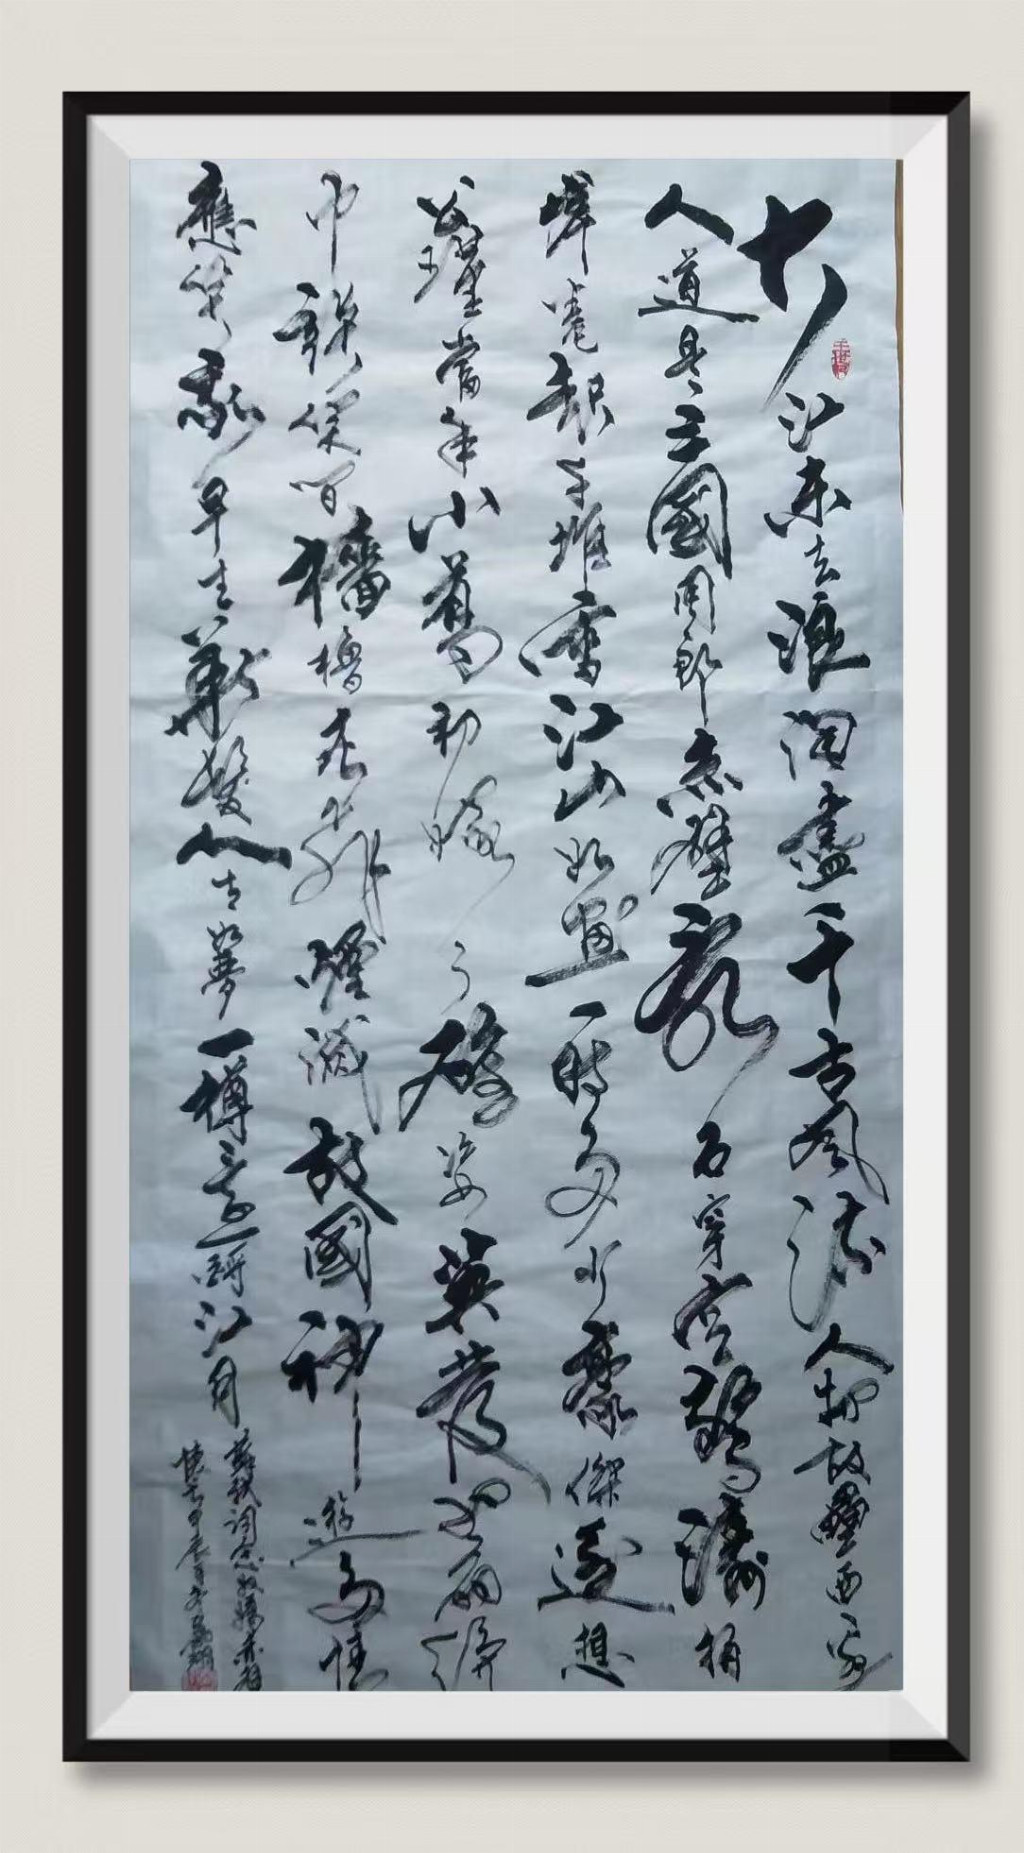 大江東去浪淘盡千古風流人物故壘西邊
人道是三國周郎赤壁亂石穿空驚濤拍
岸捲起千堆雪江山如畫一時多少豪傑遙想
公瑾當年小喬初嫁了雄姿英發羽扇綸
巾談笑間檣櫓灰飛煙滅故國神遊多情
應笑我早生華髮人生如夢一樽還酹江月
蘇軾詞念奴嬌赤壁
懷古甲辰